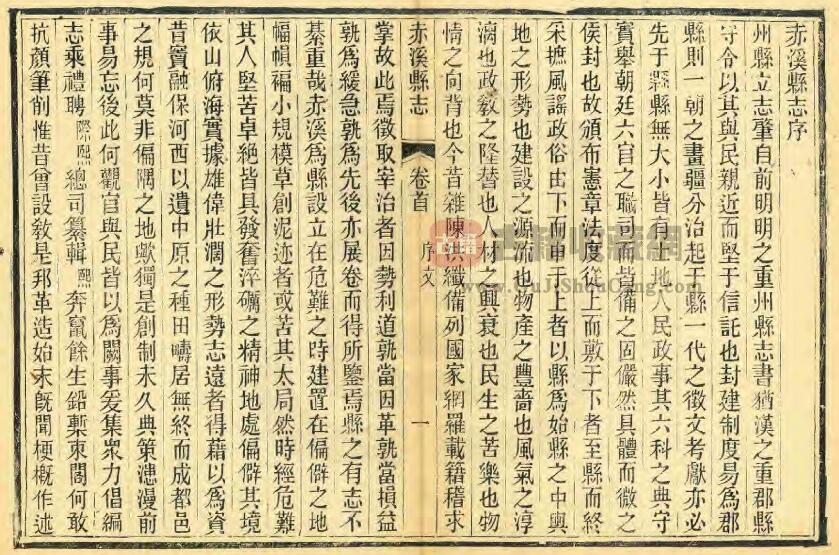 赤溪縣志序
州縣立志肇自前明明之重州縣志書猶漢之重郡縣
守令以其與民親近而堅于信託也封建制度易爲郡
縣則一朝之畫疆分治起于縣一代之徵文考獻亦必
先于縣縣無大小皆有土地人民政事其六科之典守
實舉朝廷六官之職司而皆備之固儼然具體而微之
侯封也故頒布憲章法度從上而敷于下者至縣而終
采摭風謠政俗由下而申于上者以縣爲始縣之中輿
地之形勢也建設之源流也物產之豐嗇也風氣之淳
漓也政敎之隆替也人物之興衰也民生之苦樂也物
情之向背也今昔雜陳洪纖備列國家網羅載籍稽求
赤溪縣志
卷首
序文
一
掌故此焉徵取宰治者因勢利道孰當因革孰當損益
孰爲緩急孰爲先後亦展卷而得所鑒焉縣之有志不
綦重哉赤溪爲縣設立在危難之時建置在偏僻之地
幅幀褊小規模草創泥迹者或苦其太局然時經危難
其人堅苦卓絕皆具發奮淬礪之精神地處偏僻其境
依山俯海實據雄偉壯濶之形勢志遠者得藉以爲資
昔竇融保河西以遺中原之種田疇居無終而成都邑
之規何莫非偏隅之地歟獨是創制未久典策漶漫前
事易忘後此何觀官與民皆以爲闕事爰集衆力倡編
志乘禮聘際熙總司纂輯熙奔竄餘生鉛槧東閣何敢
抗顏筆削惟昔曾設敎是邦革造始末旣聞梗概作述
古籍收藏網
www.GuJiShouCang.com